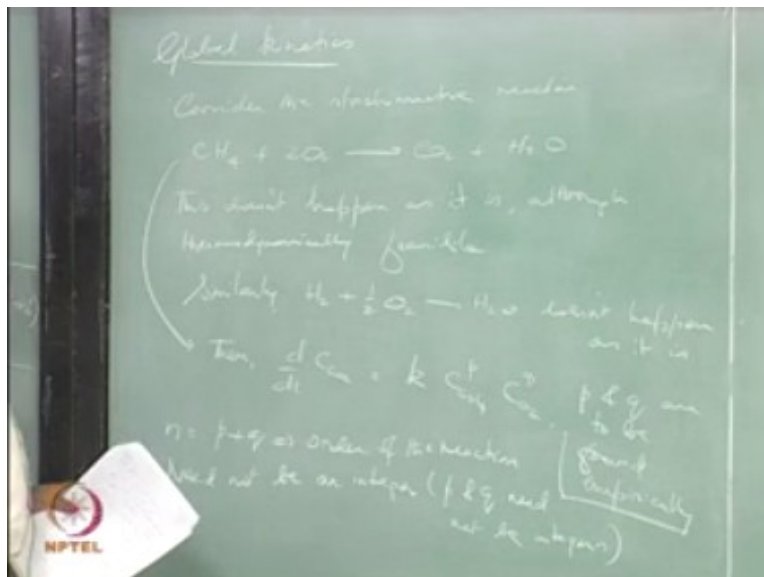 Global kinetics
Consider the stoichiometric reaction
CH₄ + 2O₂ → CO₂ + H₂O
This doesn't happen as it is, although
thermodynamically feasible
Similarly H₂ + ½O₂ — H₂O doesn't happen
as it is
Then, d/dt C = k C^p C^q, p & q are
to be
found
empirically
n = p+q order of the reaction
Need not be an integer (p & q need
not be integers)
NPTEL